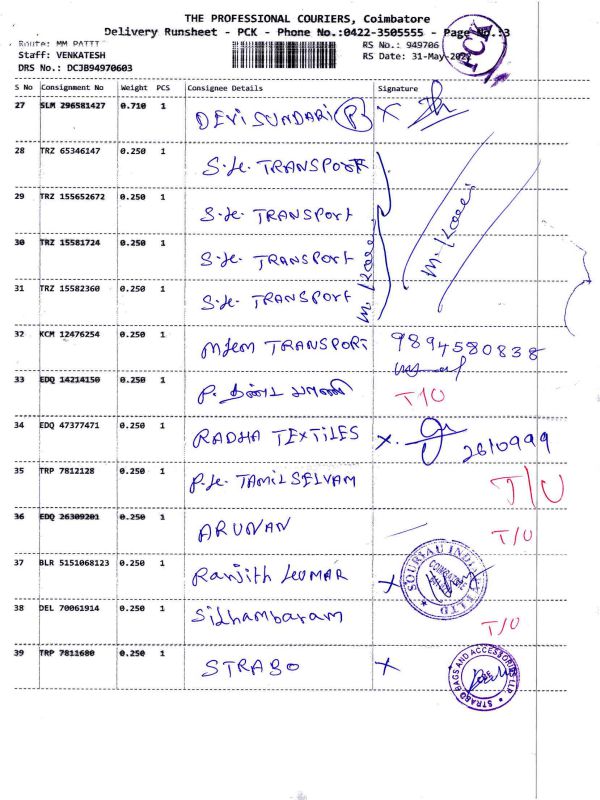 THE PROFESSIONAL COURIERS, Coimbatore
Delivery Runsheet - PCK - Phone No.:0422-3505555 - Page No.:3
Route: MM PATTI
RS No.: 949706
Staff: VENKATESH
RS Date: 31-May-2022
DRS No.: DCJB94970603
PCK
S No Consignment No Weight PCS Consignee Details Signature
27 SLM 296581427 0.710 1 DEVISUNDARI (P) X
28 TRZ 65346147 0.250 1 S.K. TRANSPORT
29 TRZ 155652672 0.250 1 S.K. TRANSPORT
30 TRZ 15581724 0.250 1 S.K. TRANSPORT
31 TRZ 15582360 0.250 1 S.K. TRANSPORT
32 KCM 12476254 0.250 1 MKM TRANSPORT 9894580838
33 EDQ 14214150 0.250 1 P. T/U
34 EDQ 47377471 0.250 1 RADHA TEXTILES X. 2610999
35 TRP 7812128 0.250 1 P.K. TAMILSELVAM T/U
36 EDQ 26309201 0.250 1 ARUNAN T/U
37 BLR 5151068123 0.250 1 Ranjith KUMAR X
SOURIAU INDIA
38 DEL 70061914 0.250 1 Sidhambaram T/U
39 TRP 7811680 0.250 1 STRABO X
STRABO BAGS AND ACCESSORIES LLP